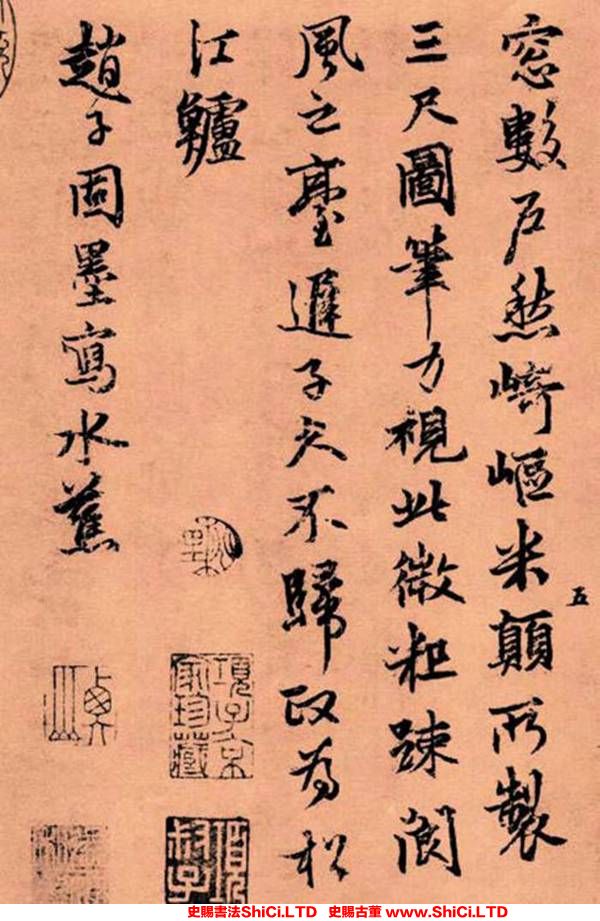 窓數尺愁崎嶇米顛所製
五
三尺圖筆力視此微粗踈閬
風之臺遲子久不歸政為松
江鱸
趙子固墨寫水蕉
項子京家珍藏
項叔子
史賜書法ShiCi.LTD 史賜古董 www.ShiCi.LTD